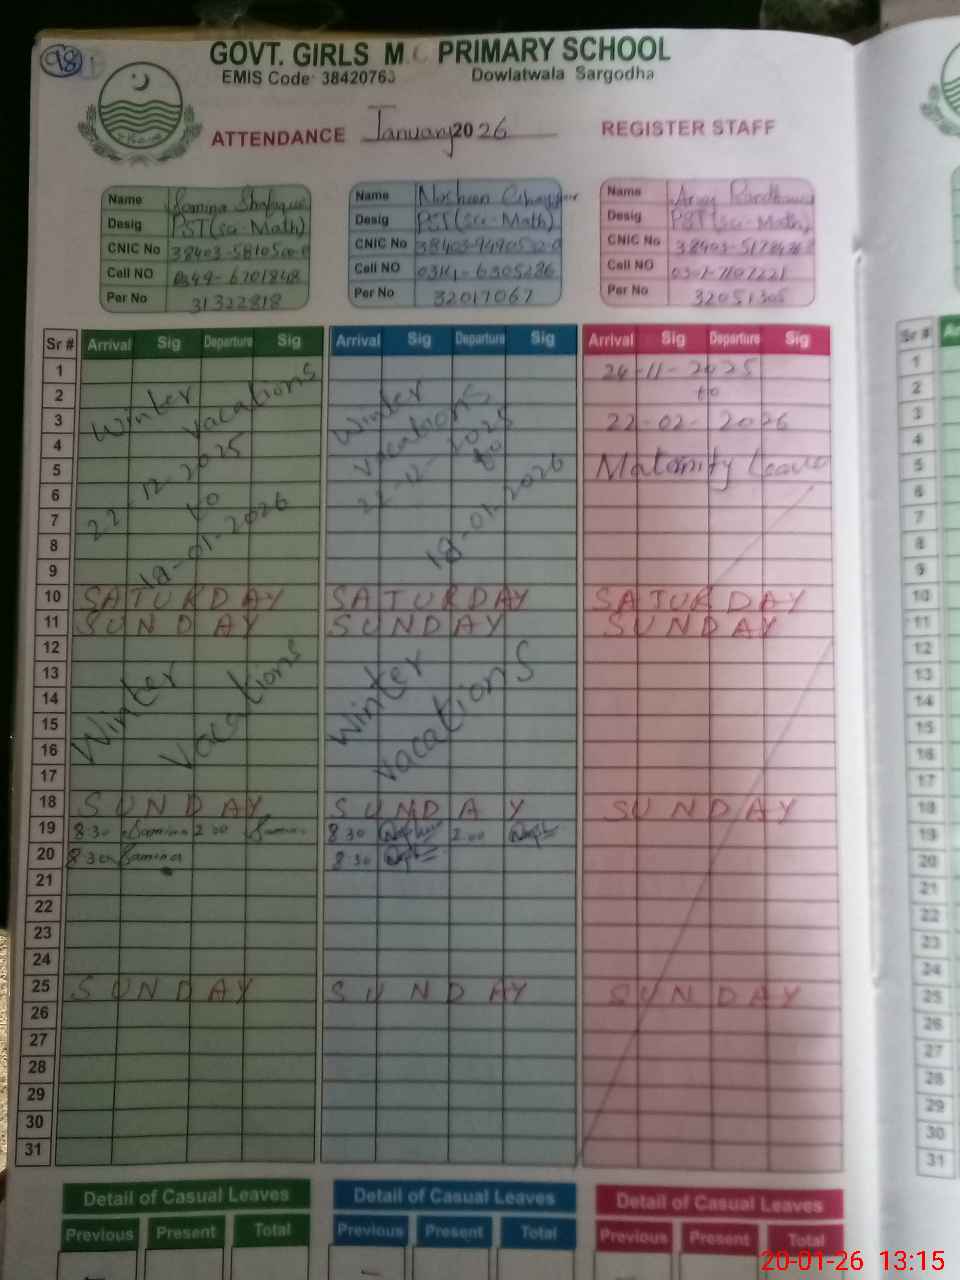 98
GOVT. GIRLS M C PRIMARY SCHOOL
EMIS Code: 38420763
Dowlatwala Sargodha
ATTENDANCE January 2026 REGISTER STAFF
Name Samina Shafaqat
Desig PST (Sci-Math)
CNIC No
Cell NO
Per No 31322818
Name Nosheen
Desig PST (Sci-Math)
CNIC No
Cell NO 0341-6305286
Per No 32017067
Name
Desig PST (Sci-Math)
CNIC No
Cell NO
Per No 32051305
Sr # Arrival Sig Departure Sig Arrival Sig Departure Sig Arrival Sig Departure Sig
1 24-11-2025
2 Winter vacations Winter to
3 vacations 22-02-2026
4 22-12-2025 22-12-2025
5 to to Maternity Leave
6 18-01-2026 18-01-2026
7
8
9
10 SATURDAY SATURDAY SATURDAY
11 SUNDAY SUNDAY SUNDAY
12
13 Winter vacations Winter
14 vacations
15
16
17
18 SUNDAY SUNDAY SUNDAY
19 8:30 Samina 2:00 Samina 8:30 2:00
20 8:30 Samina 8:30
21
22
23
24
25 SUNDAY SUNDAY SUNDAY
26
27
28
29
30
31
Detail of Casual Leaves Detail of Casual Leaves Detail of Casual Leaves
Previous Present Total Previous Present Total Previous Present Total
Sr #
1
2
3
4
5
6
7
8
9
10
11
12
13
14
15
16
17
18
19
20
21
22
23
24
25
26
27
28
29
30
31
20-01-26 13:15